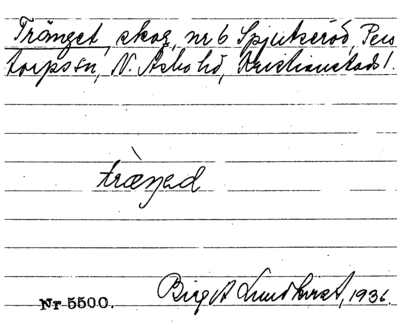 Tränget, skog, nr 6 Spjutseröd, Pers
torps sn, N. Åsbo hd, Kristianstads l.
träŋəd
Nr 5500. Birgit Lundkvist, 1936.